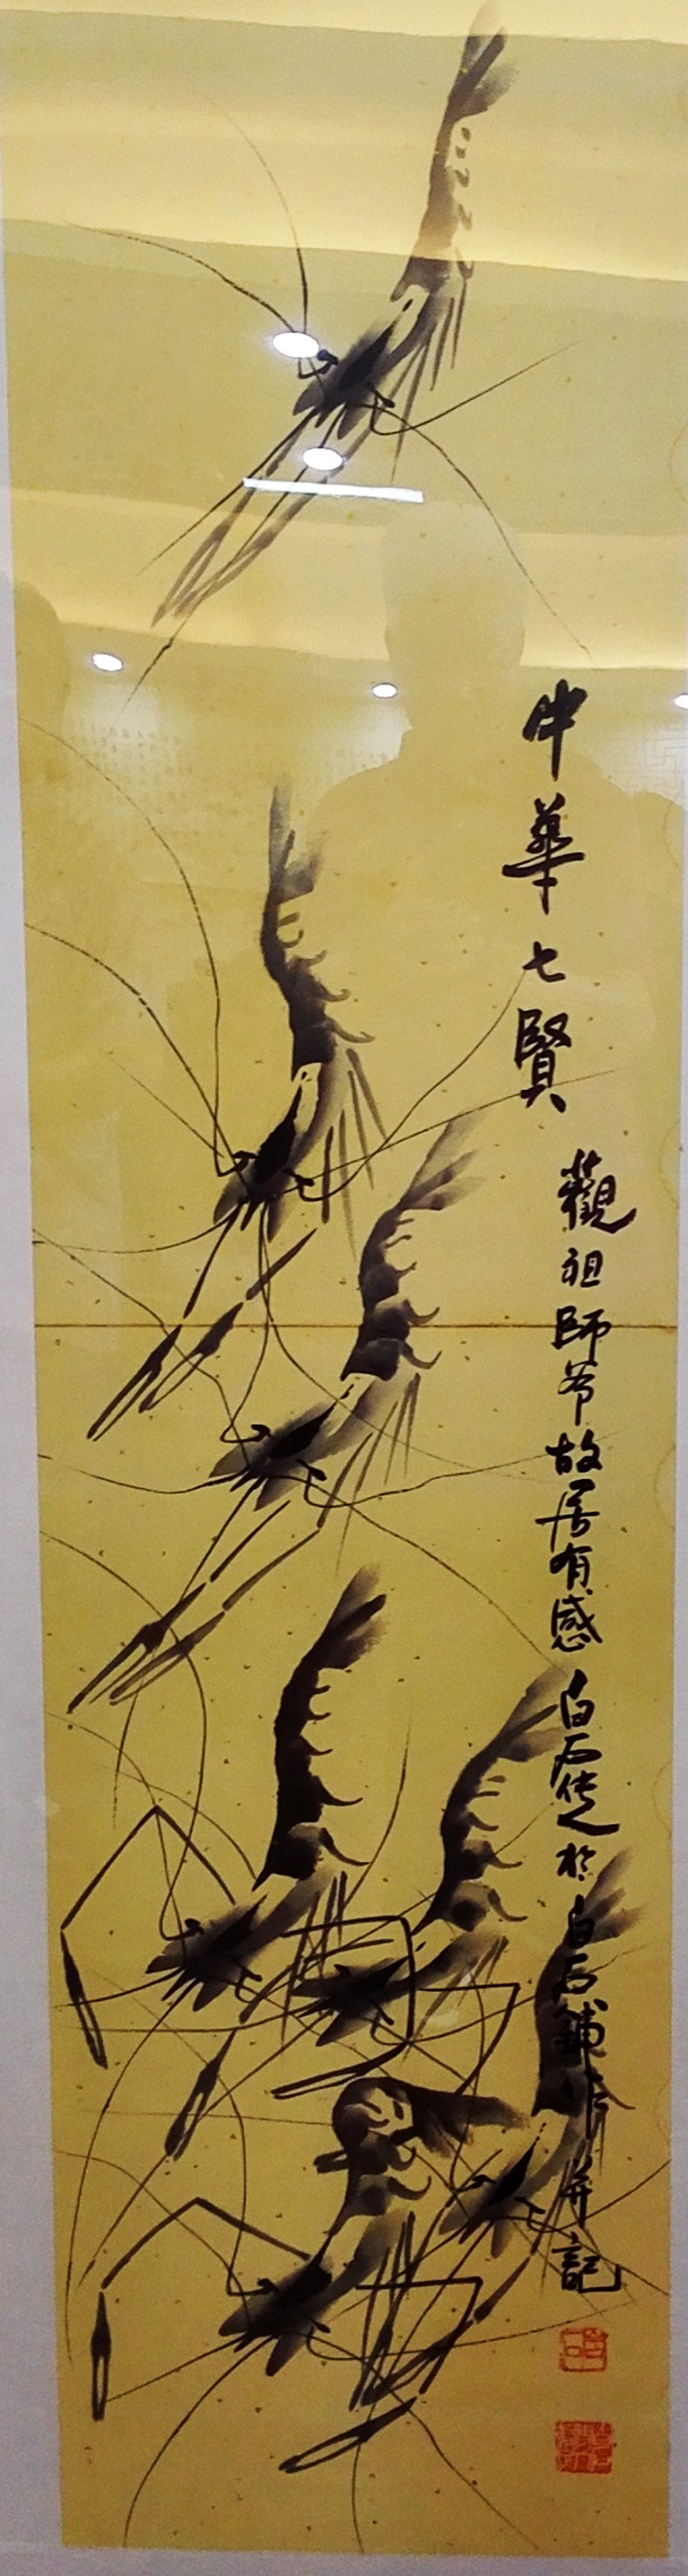 中華七賢
觀祖師爷故居有感白石传人於白石鋪作并記